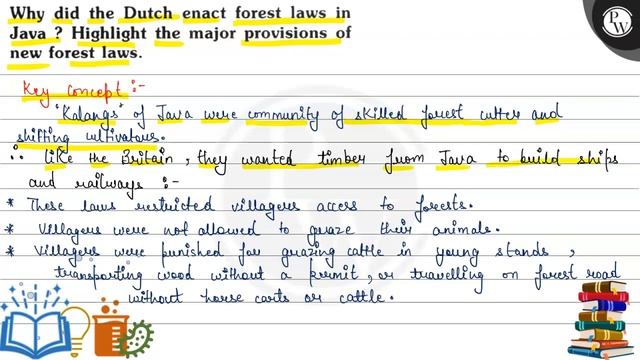 Why did the Dutch enact forest laws in
Java ? Highlight the major provisions of
new forest laws.
Key concept :-
"Kalangs" of Java were community of skilled forest cutter and
shifting cultivators.
∴ Like the Britain , they wanted timber from Java to build ships
and railways :-
* These laws restricted villagers access to forests.
* Villagers were not allowed to graze their animals.
* Villagers were punished for grazing cattle in young stands ,
transporting wood without a permit, or travelling on forest road
without horse carts or cattle.